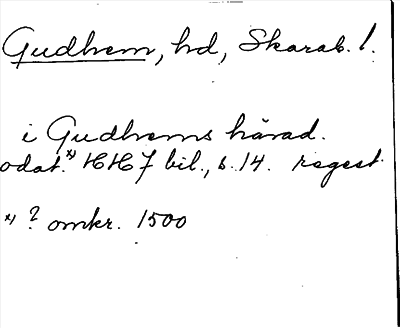 Gudhem, hd, Skarab. l.
i Gudhems härad.
odat.*) HH 7 bil., s. 14. regest
*) ? omkr. 1500